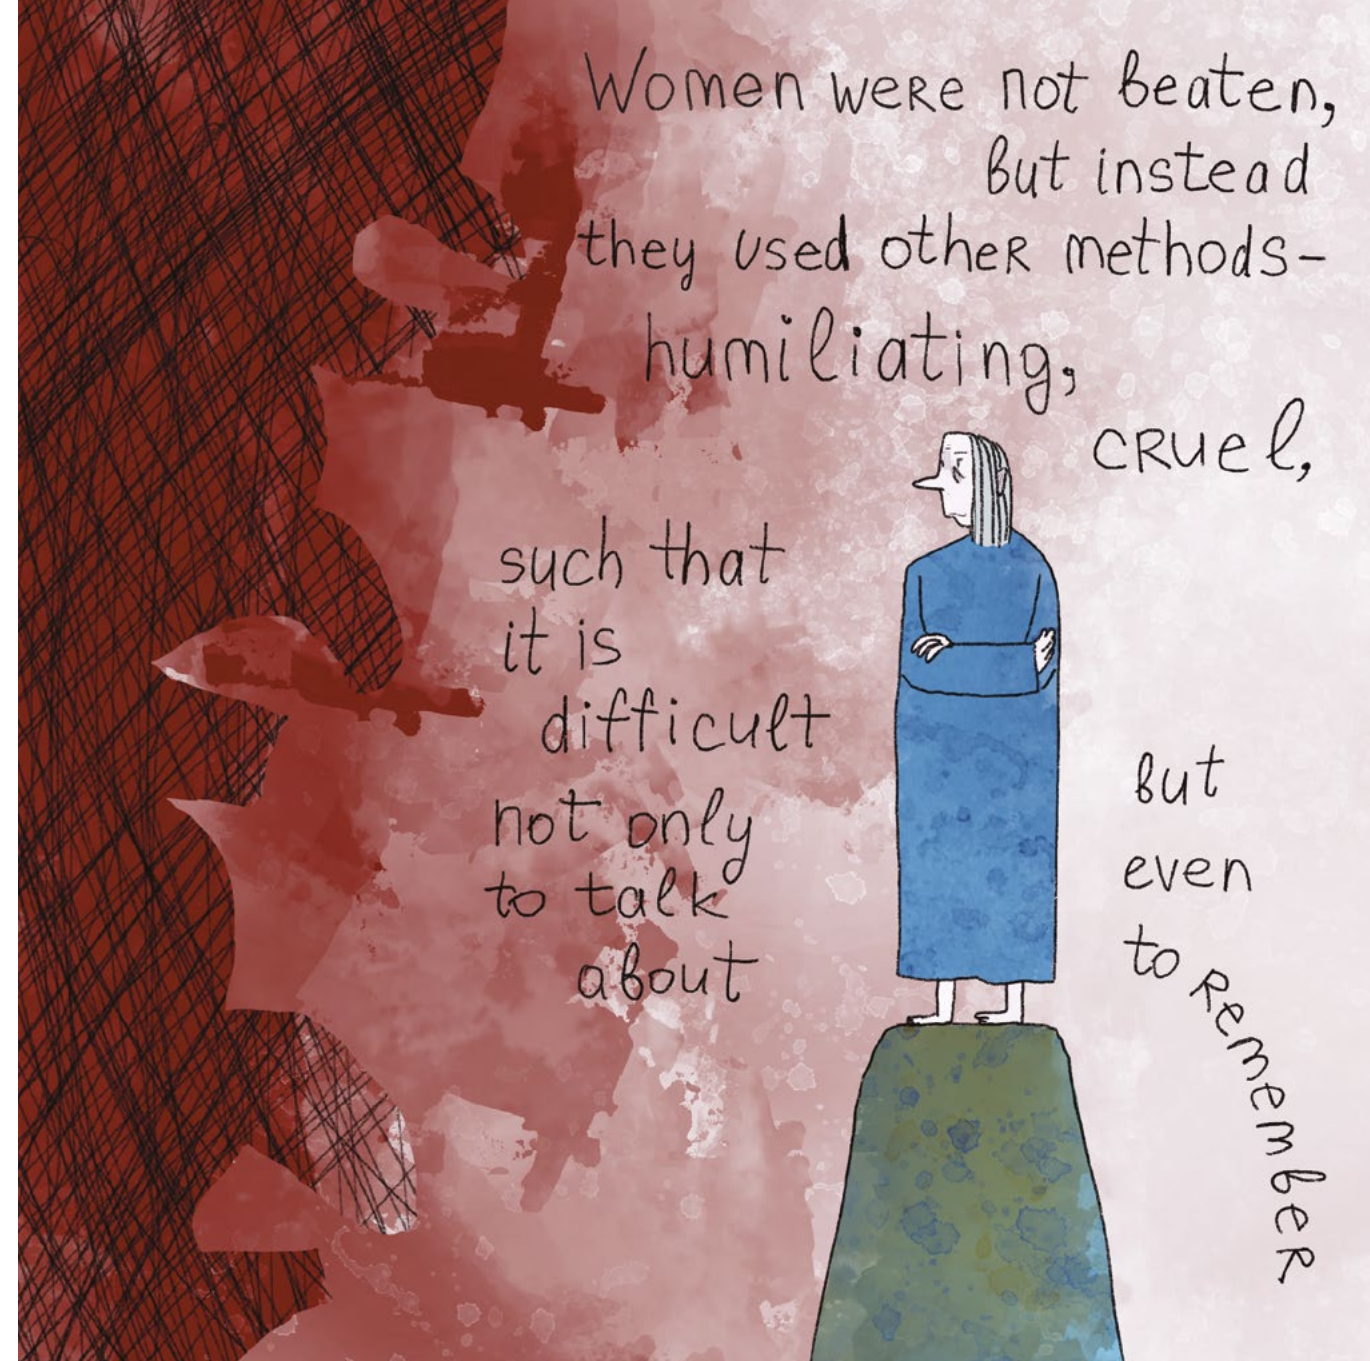 Women were not beaten,
but instead
they used other methods-
humiliating,
cruel,
such that
it is
difficult
not only
to talk
about
but
even
to remember